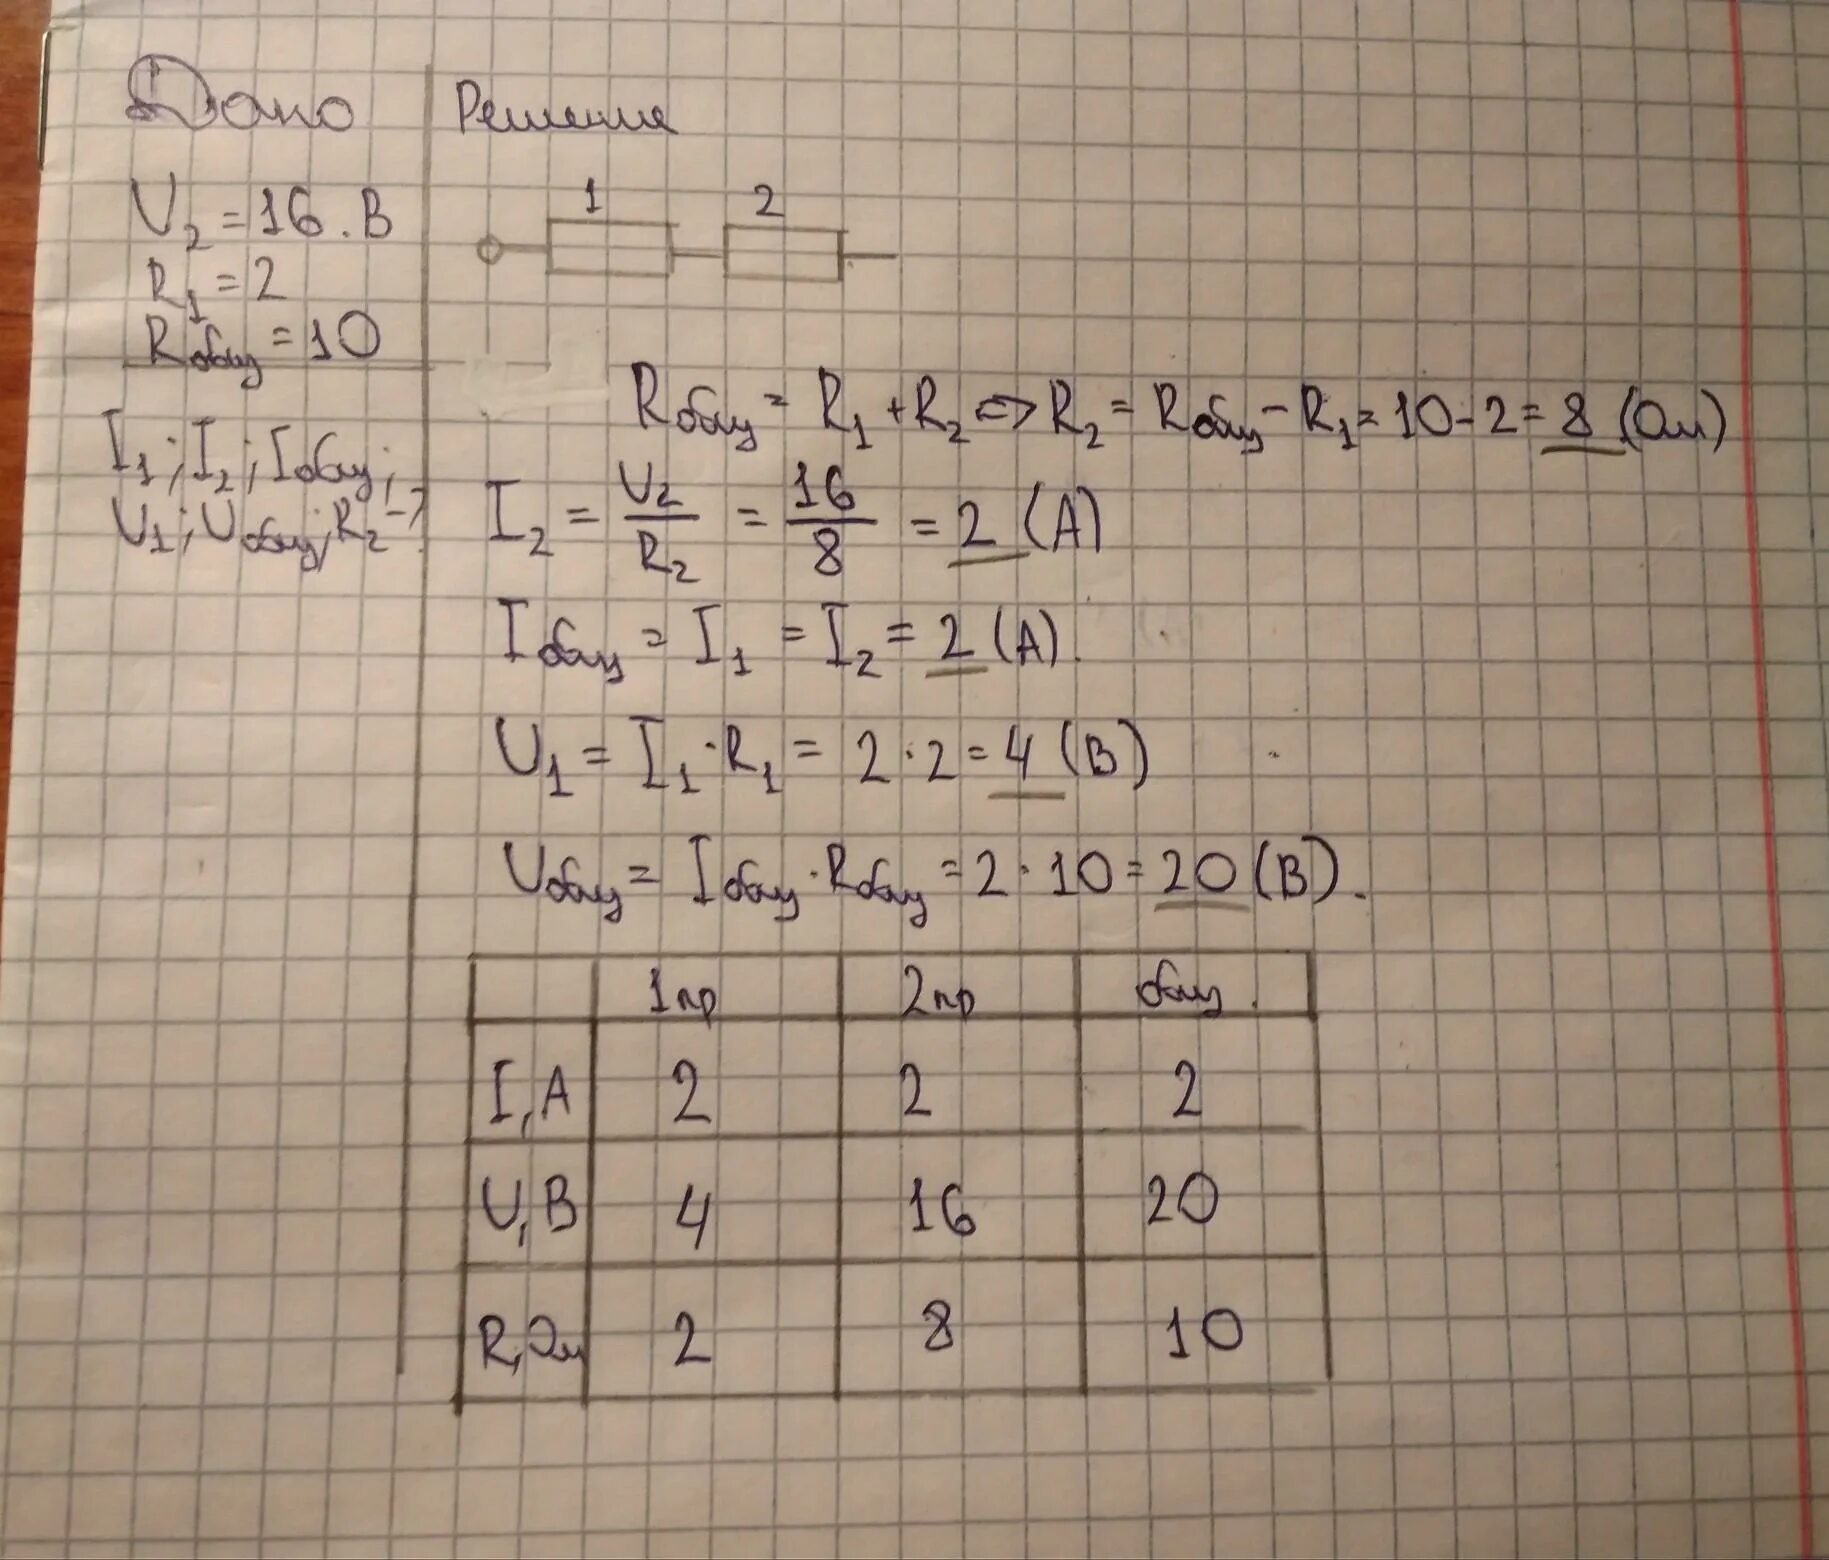 Дано
U₂ = 16.В
R₁ = 2
Rобщ = 10
I₁; I₂; Iобщ;
U₁; Uобщ; R₂ - ?
Решение
1 2
Rобщ = R₁ + R₂ => R₂ = Rобщ - R₁ = 10 - 2 = 8 (Ом)
I₂ = U₂/R₂ = 16/8 = 2 (А)
Iобщ = I₁ = I₂ = 2 (А).
U₁ = I₁ · R₁ = 2 · 2 = 4 (В)
Uобщ = Iобщ · Rобщ = 2 · 10 = 20 (В).
1пр 2пр общ.
I, А 2 2 2
U, В 4 16 20
R, Ом 2 8 10